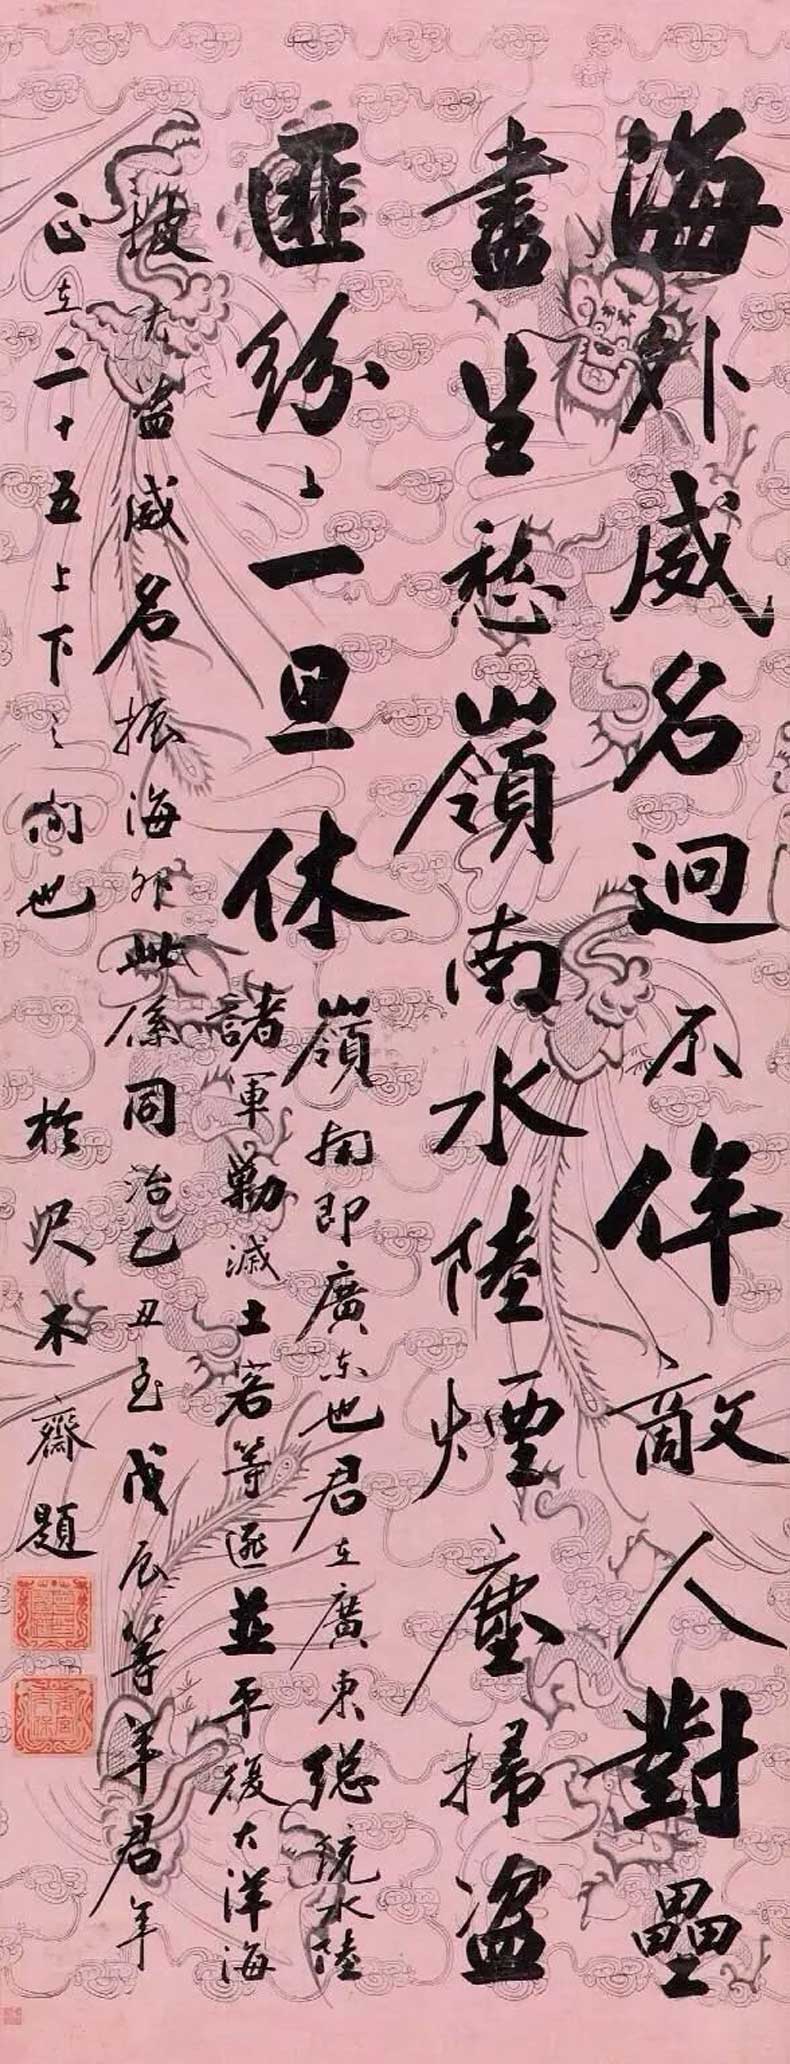 海外威名迥不侔敵人對壘
盡生愁嶺南水陸煙塵掃盜
匪紛紛一旦休
嶺南即廣東也君在廣東總統水陸
諸軍勦滅土客等匪並平復大洋海
坡大盜威名振海外此係同治乙丑至戊辰等年君年
正在二十五上下之間也 於尺木齋題